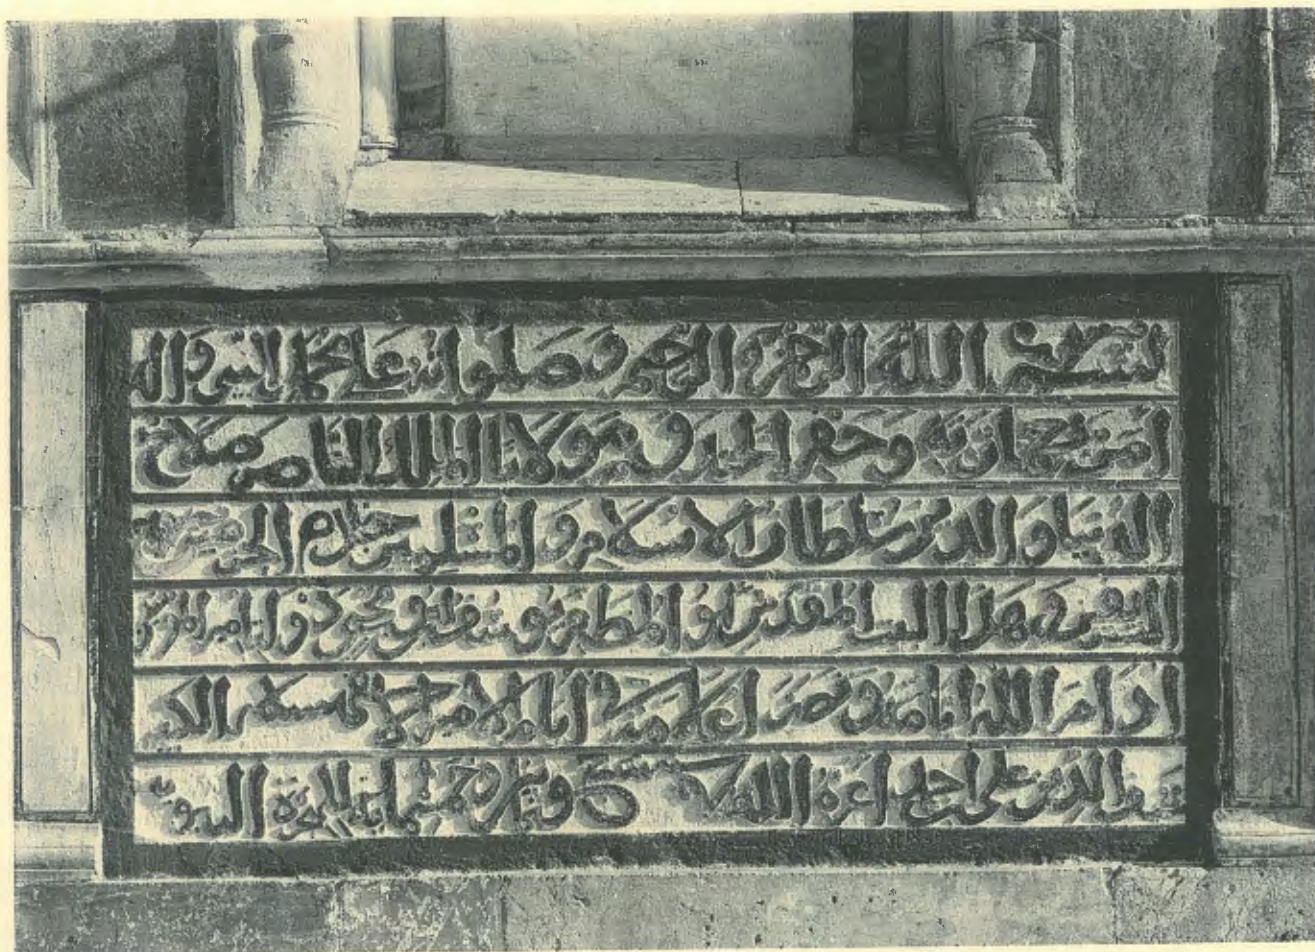 بسم الله الرحمن الرحيم وصلواته على محمد النبي واله
امر بعمارته وحفر الخندق مولانا الملك الناصر صلاح
الدنيا والدين سلطان الاسلام والمسلمين خادم الحرمين
الشريفين وهذا البيت المقدس ابو المظفر يوسف بن ايوب محيي دولة امير المؤمنين
ادام الله ايامه ونصر اعلامه في ايام الامير الكبير
سيف الدين علي بن احمد اعزه الله سنة سبع وثمانين وخمسمائة للهجرة النبوية